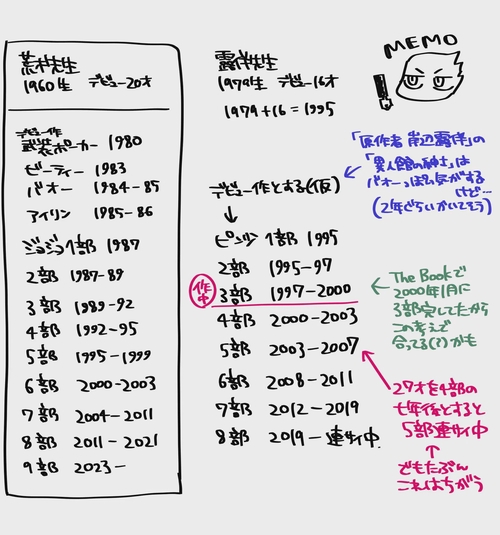 荒木先生
1960生 デビュー20才
デビュー作
武装ポーカー 1980
ビーティー 1983
バオー 1984-85
アイリン 1985-86
ジョジョ1部 1987
2部 1987-89
3部 1989-92
4部 1992-95
5部 1995-1999
6部 2000-2003
7部 2004-2011
8部 2011-2021
9部 2023-
露伴先生
1979生 デビュー16才
1979+16=1995
デビュー作とする(仮)
↓
ピンクダ 1部 1995
2部 1995-97
作中
3部 1997-2000
4部 2000-2003
5部 2003-2007
6部 2008-2011
7部 2012-2019
8部 2019-連サイ中
MEMO
「原作者 岸辺露伴」の
「異人館の紳士」は
バオーっぽい気がする
けど…
(2年ぐらいかいてそう)
The Bookで
2000年1月に
3部完してたから
この考えで
合ってる(?)かも
27才を4部の
七年後とすると
5部連サイ中
↑
でもたぶん
これはちがう